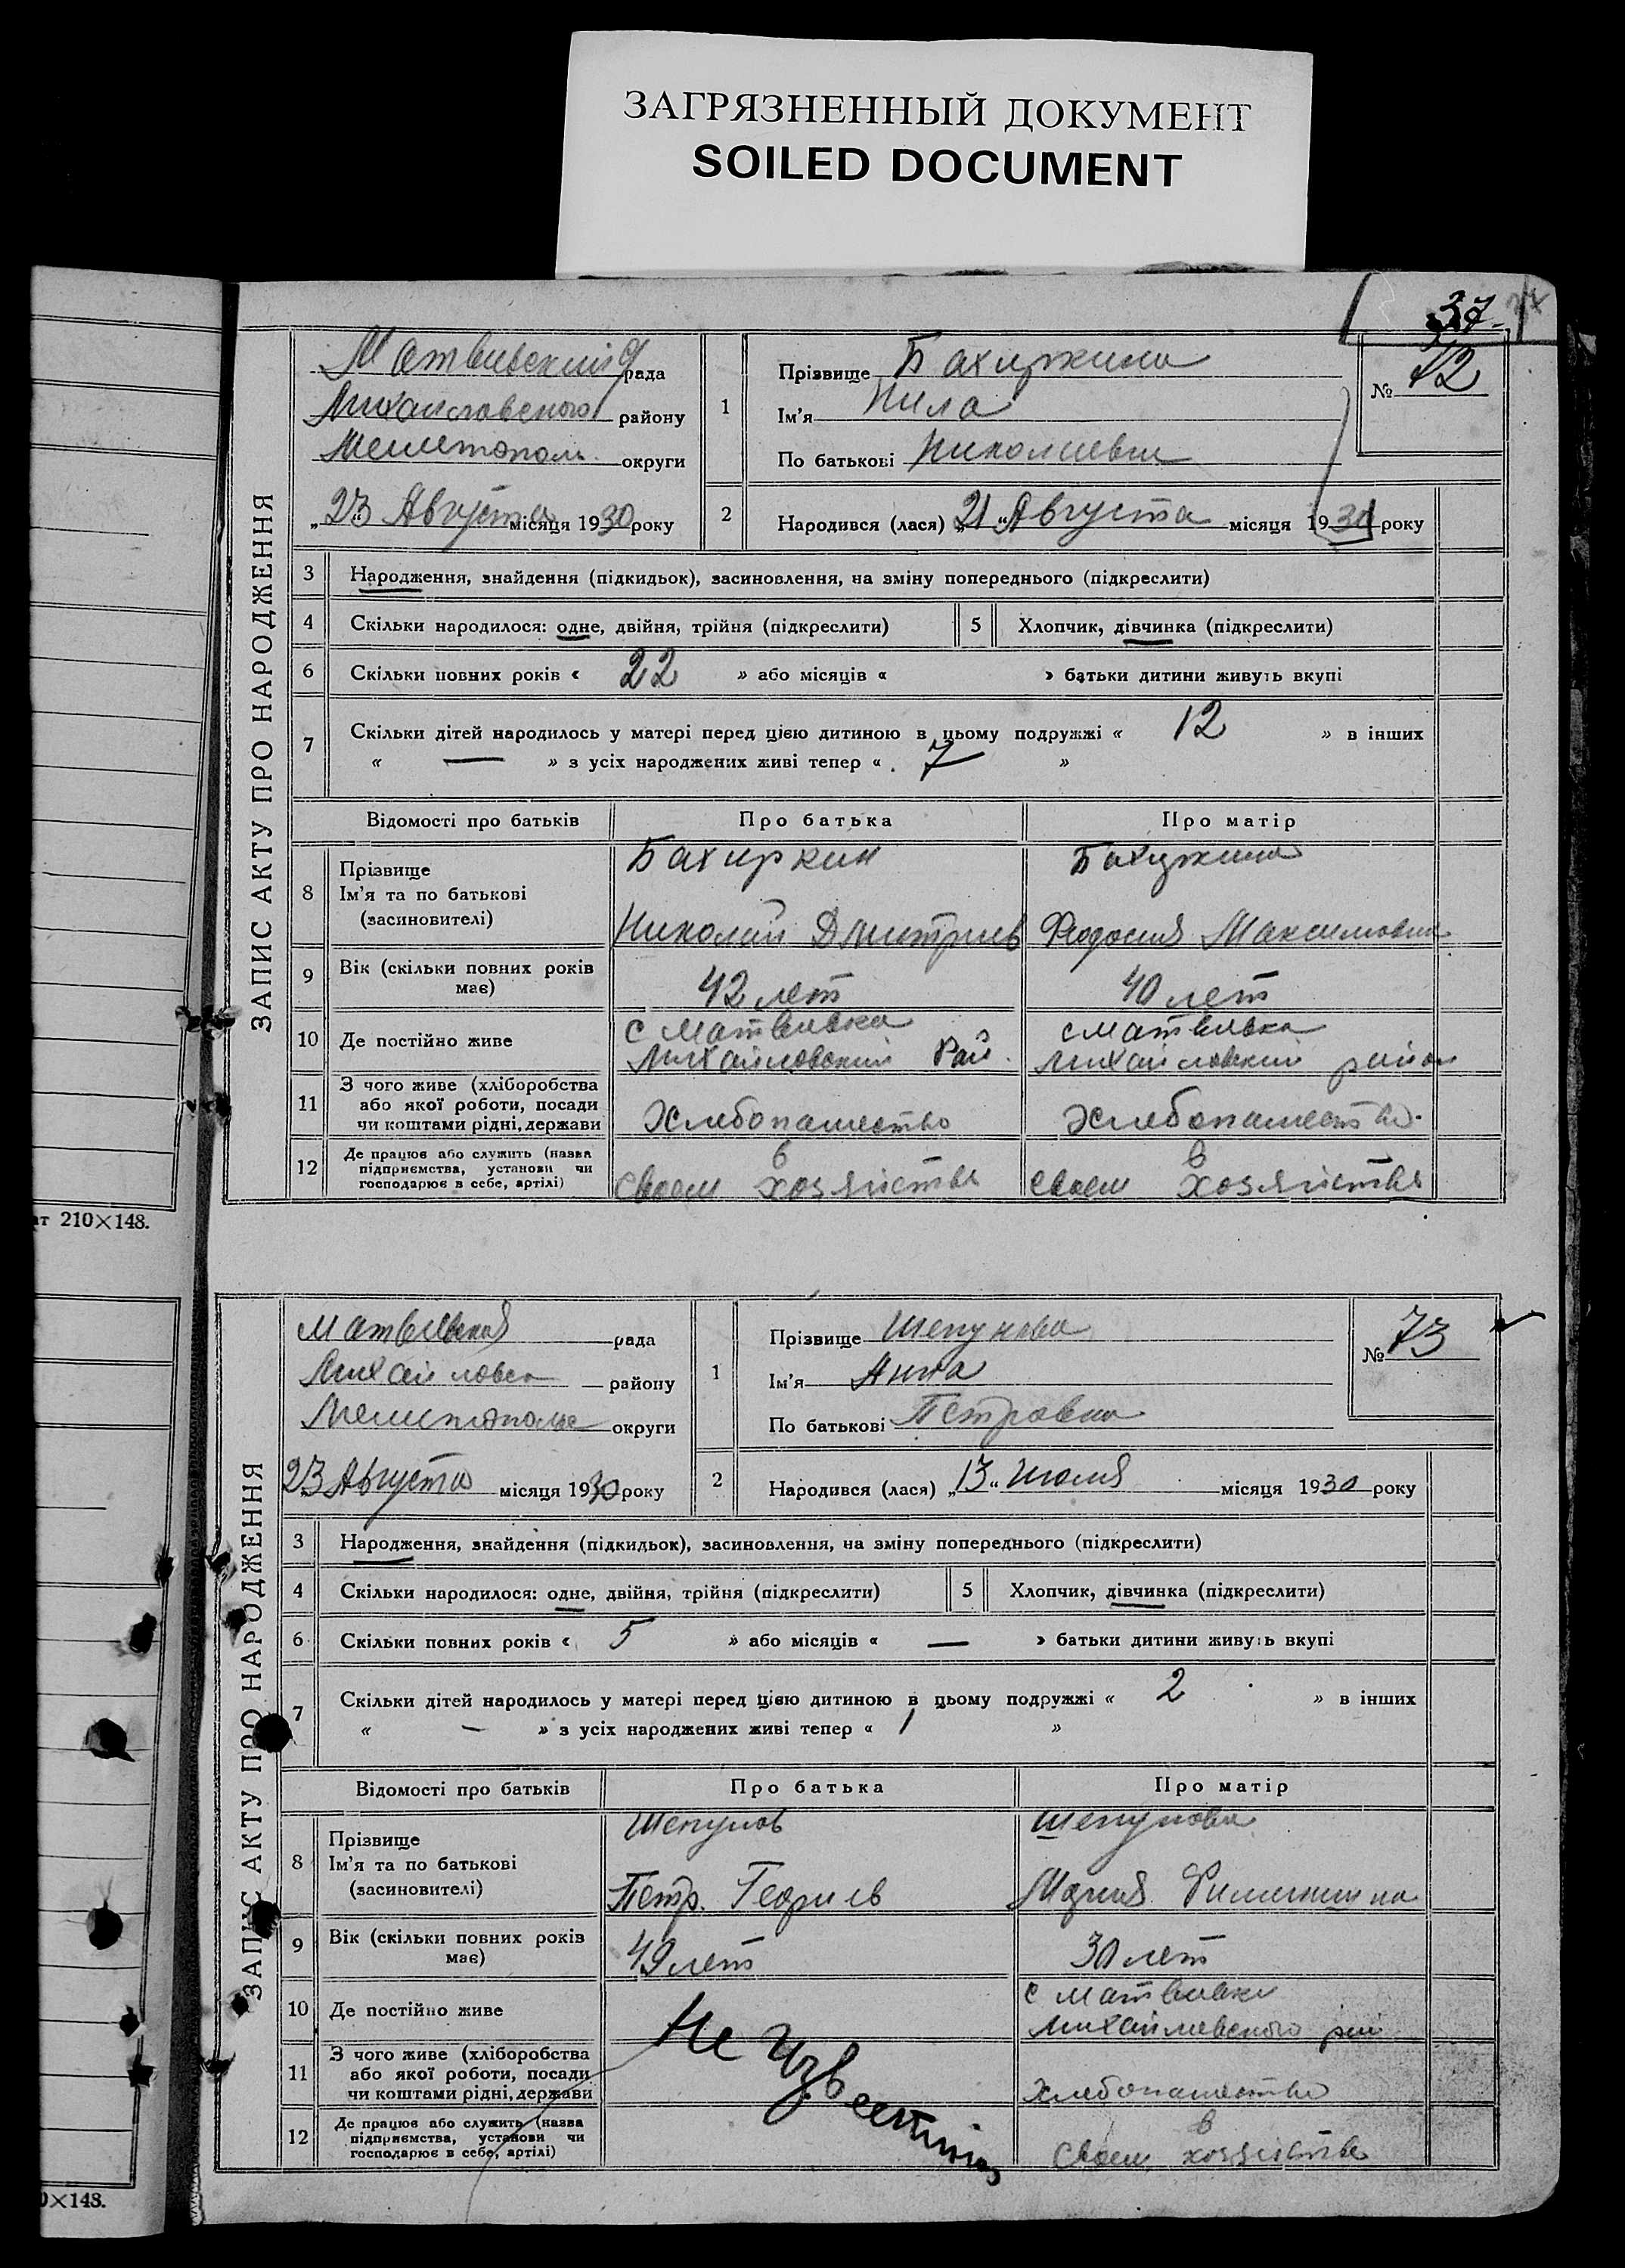 ЗАГРЯЗНЕННЫЙ ДОКУМЕНТ
SOILED DOCUMENT
37
ЗАПИС АКТУ ПРО НАРОДЖЕННЯ
рада
Михайловского району
Мелитопол. округи
„23 Августа місяця 1930 року
1
Прізвище Бахиркина
Ім’я Нила
По батькові Николаевна
№ 72
2
Народився (лася) „21“ Августа місяця 1930 року
3 Народження, знайдення (підкидьок), засиновлення, на зміну попереднього (підкреслити)
4 Скільки народилося: одне, двійня, трійня (підкреслити) 5 Хлопчик, дівчинка (підкреслити)
6 Скільки повних років « 22 » або місяців « » батьки дитини живуть вкупі
7 Скільки дітей народилось у матері перед цією дитиною в цьому подружжі « 12 » в інших
« — » з усіх народжених живі тепер « 7 »
Відомості про батьків Про батька Про матір
8 Прізвище
Ім’я та по батькові
(засиновителі)
Бахиркин
Николай Дмитриев
Бахиркина
Феодосия Максимовна
9 Вік (скільки повних років
має)
42 лет
40 лет
10 Де постійно живе
с Матвеевка
Михайловский Рай.
с Матвеевка
Михайловский район
11 З чого живе (хліборобства
або якої роботи, посади
чи коштами рідні, держави
Хлебопашество
Хлебопашество.
12 Де працює або служить (назва
підприємства, установи чи
господарює в себе, артілі)
в
своем хозяйстве
в
своем хозяйстве
ат 210×148.
ЗАПИС АКТУ ПРО НАРОДЖЕННЯ
Матвеевская рада
Михайловск району
округи
23 Августа місяця 1930 року
1
Прізвище Шепунова
Ім’я Анна
По батькові Петровна
№ 73
2
Народився (лася) „13“ Июля місяця 1930 року
3 Народження, знайдення (підкидьок), засиновлення, на зміну попереднього (підкреслити)
4 Скільки народилося: одне, двійня, трійня (підкреслити) 5 Хлопчик, дівчинка (підкреслити)
6 Скільки повних років « 5 » або місяців « — » батьки дитини живуть вкупі
7 Скільки дітей народилось у матері перед цією дитиною в цьому подружжі « 2 » в інших
« — » з усіх народжених живі тепер « 1 »
Відомості про батьків Про батька Про матір
8 Прізвище
Ім’я та по батькові
(засиновителі)
Шепунов
Петр.
Шепунова
Мария
9 Вік (скільки повних років
має)
49 лет
30 лет
10 Де постійно живе
с Матвеевки
Михайловского рай
11 З чого живе (хліборобства
або якої роботи, посади
чи коштами рідні, держави
Хлебопашество
12 Де працює або служить (назва
підприємства, установи чи
господарює в себе, артілі)
Не
в
своем хозяйстве
0×148.